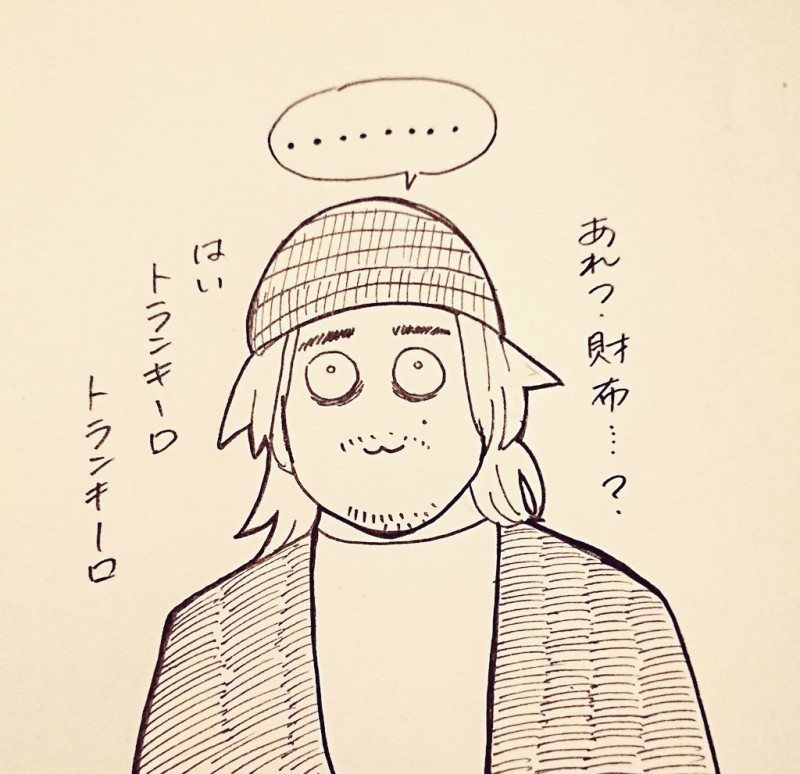 ........
あれっ.財布…?.
はい
トランキーロ
トランキーロ